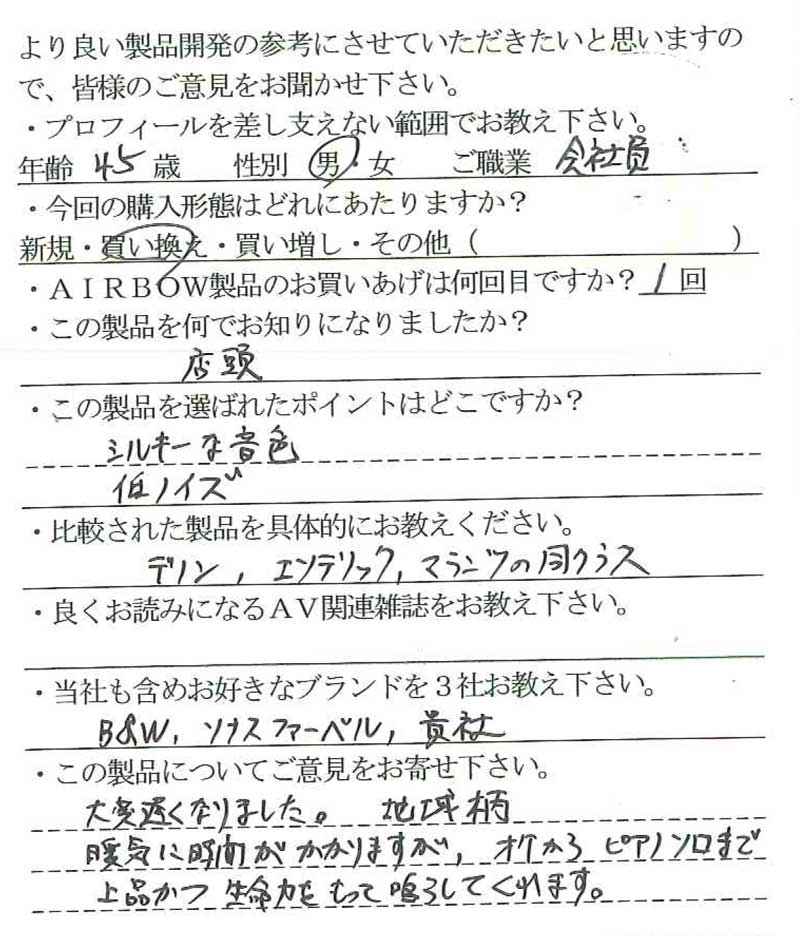 より良い製品開発の参考にさせていただきたいと思いますの
で、皆様のご意見をお聞かせ下さい。
・プロフィールを差し支えない範囲でお教え下さい。
年齢 45 歳 性別 男・女 ご職業 会社員
・今回の購入形態はどれにあたりますか？
新規・買い換え・買い増し・その他（ ）
・ＡＩＲＢＯＷ製品のお買いあげは何回目ですか？ 1 回
・この製品を何でお知りになりましたか？
店頭
・この製品を選ばれたポイントはどこですか？
シルキーな音色
低ノイズ
・比較された製品を具体的にお教えください。
デノン, エソテリック, マランツの同クラス
・良くお読みになるＡＶ関連雑誌をお教え下さい。
・当社も含めお好きなブランドを３社お教え下さい。
B&W, ソナスファーベル, 貴社
・この製品についてご意見をお寄せ下さい。
大変遅くなりました。 地域柄
暖気に時間がかかりますが, オケから ピアノソロまで
上品かつ 生命力をもって鳴らしてくれます。